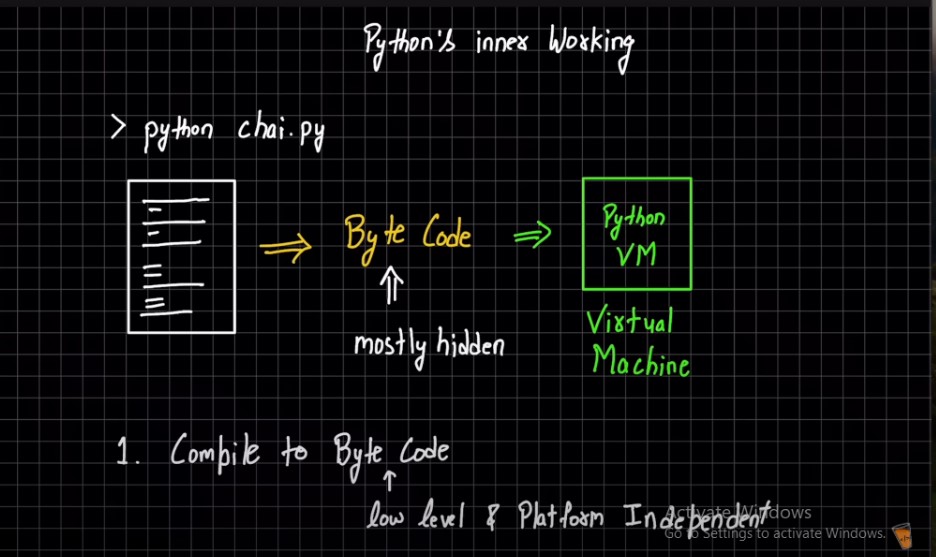 Python's inner Working
> python chai.py
Byte Code
Python
VM
mostly hidden
Virtual
Machine
1. Compile to Byte Code
low level & Platform Independent
Activate Windows
Go to Settings to activate Windows.